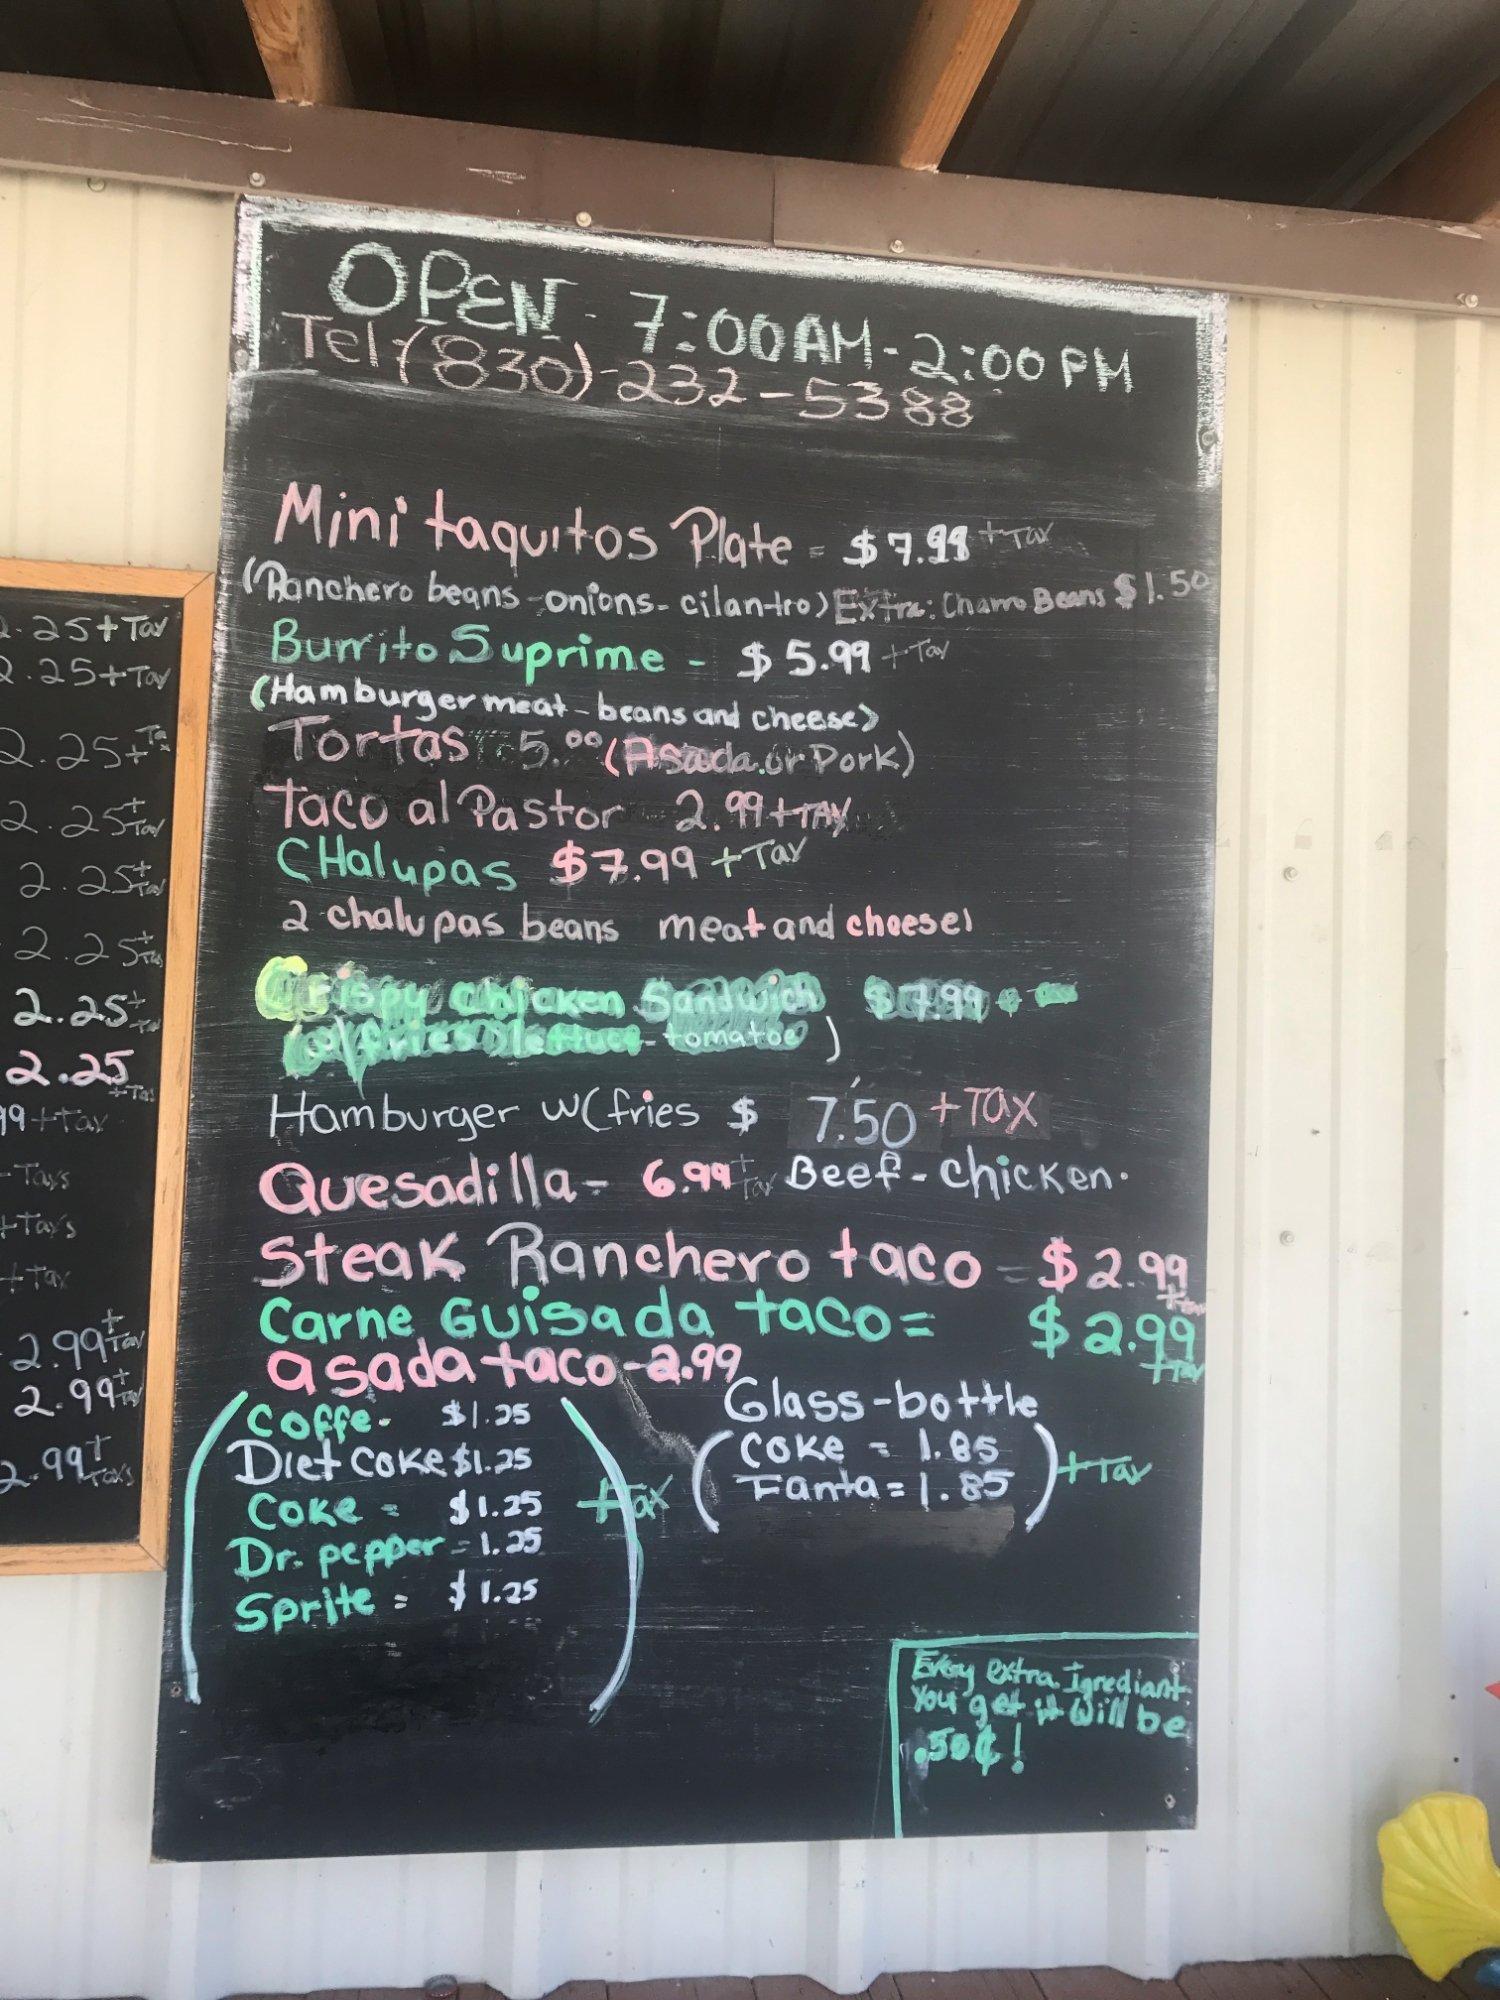 OPEN - 7:00AM - 2:00PM
Tel-(830)-232-5388
Mini taquitos Plate = $7.99 + Tax
(Ranchero beans-onions-cilantro) Extra: Charro Beans $1.50
Burrito Suprime - $5.99 + Tax
(Hamburger meat-beans and cheese)
Tortas 5.00 (Asada or Pork)
Taco al Pastor 2.99 + TAX
CHalupas $7.99 + Tax
2 chalupas beans meat and cheese)
Crispy Chicken Sandwich $7.99 +
w/fries lettuce-tomatoe)
Hamburger w(fries $ 7.50 + Tax
Quesadilla - 6.99 + Tax Beef-chicken.
Steak Ranchero taco = $2.99 + tax
Carne Guisada taco = $2.99 + Tax
asada taco - 2.99
Coffe- $1.25
Diet Coke $1.25
Coke = $1.25
Dr. pepper = 1.25
Sprite = $1.25
+ Tax
Glass-bottle
Coke = 1.85
Fanta = 1.85
+ Tax
Every extra Igrediant
You get it will be
.50¢!
2.25 + Tax
2.25 + Tax
2.25 + Tax
2.25 + Tax
2.25 + Tax
2.25 + Tax
2.25 +
2.25
+ Tax
99 + Tax
- Tax's
+ Tax's
+ Tax
2.99 + Tax
2.99 + Tax
2.99 + Tax's